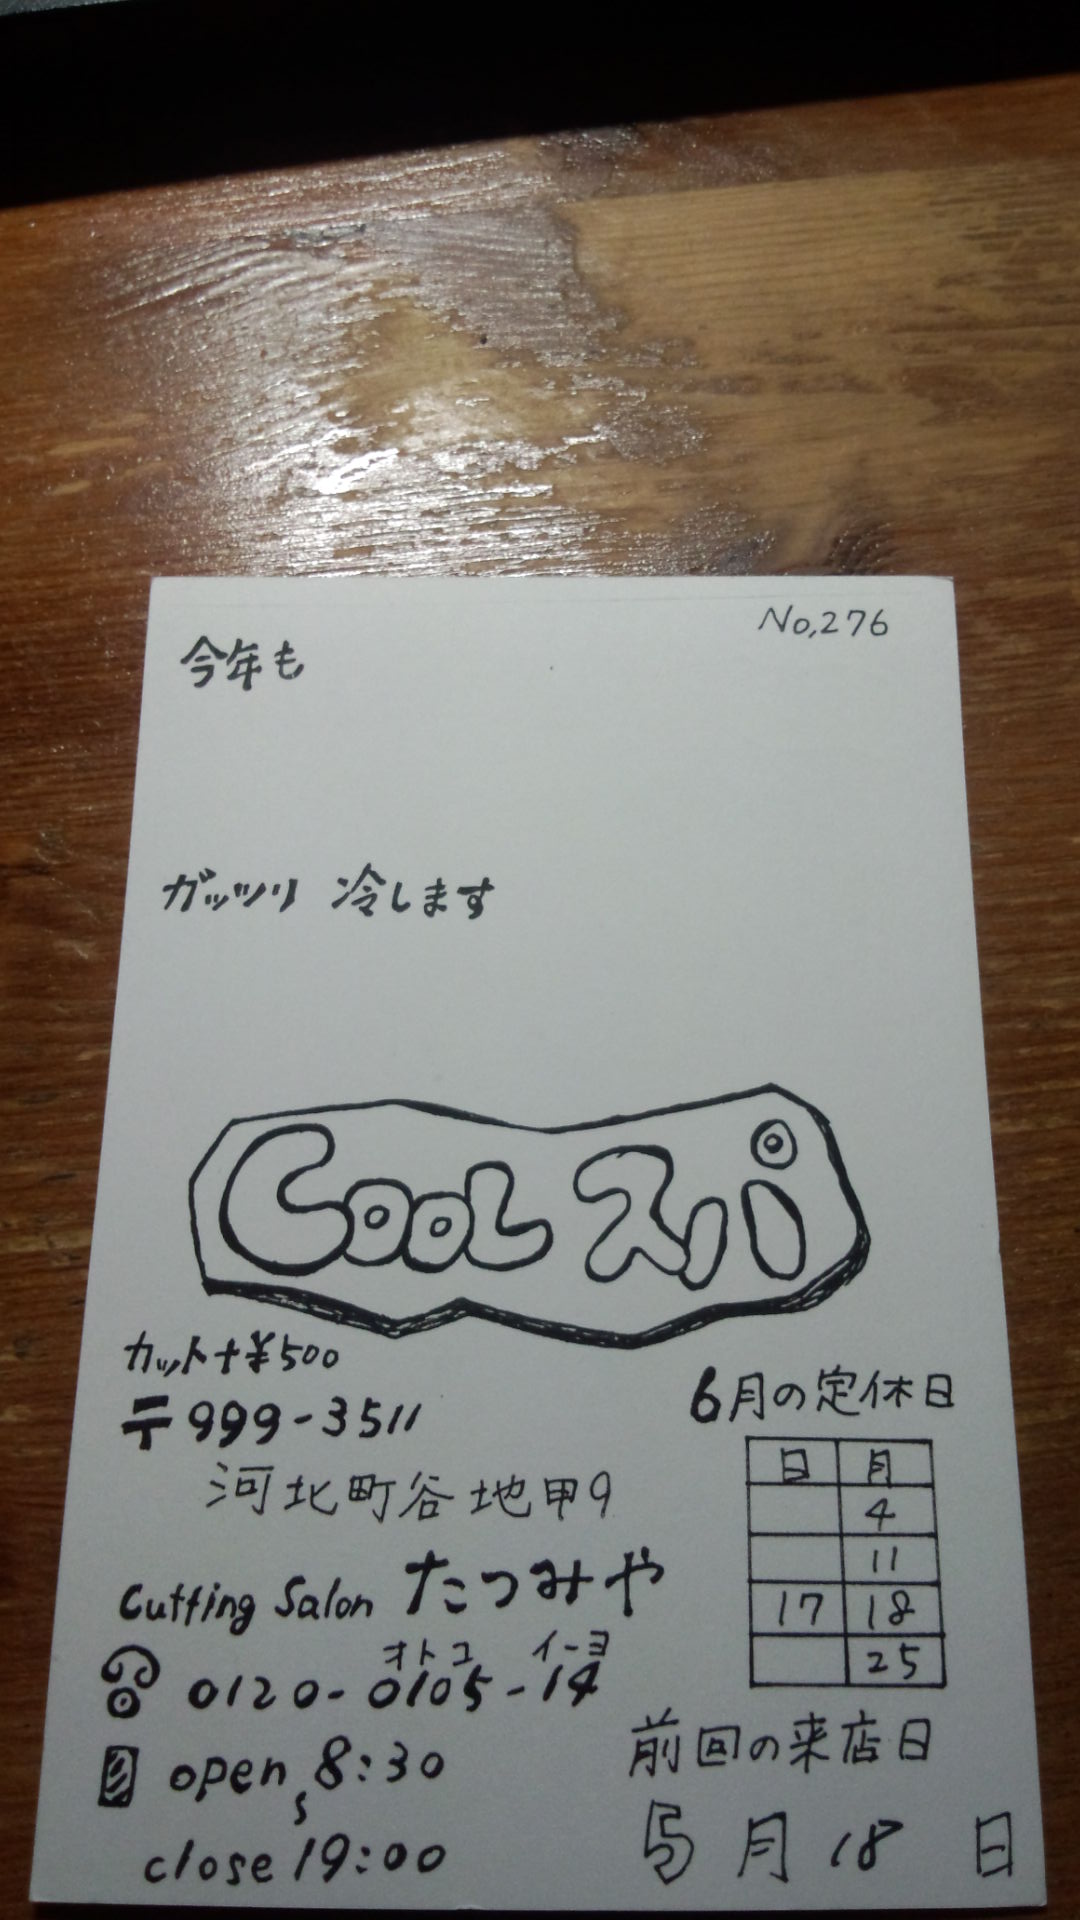 No,276
今年も
ガッツリ 冷します
COOL スパ
カット+¥500
〒999-3511
河北町谷地甲9
Cutting Salon たつみや
オトコ イーヨ
0120-0105-14
open 8:30
close 19:00
6月の定休日
日 月
4
11
17 18
25
前回の来店日
5月18日